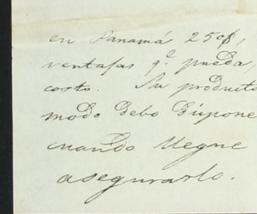 en Panamá 25 cf,
ventajas q.e pueda,
costo. Su producto
modo debo supone
cuando llegue
asegurarlo.